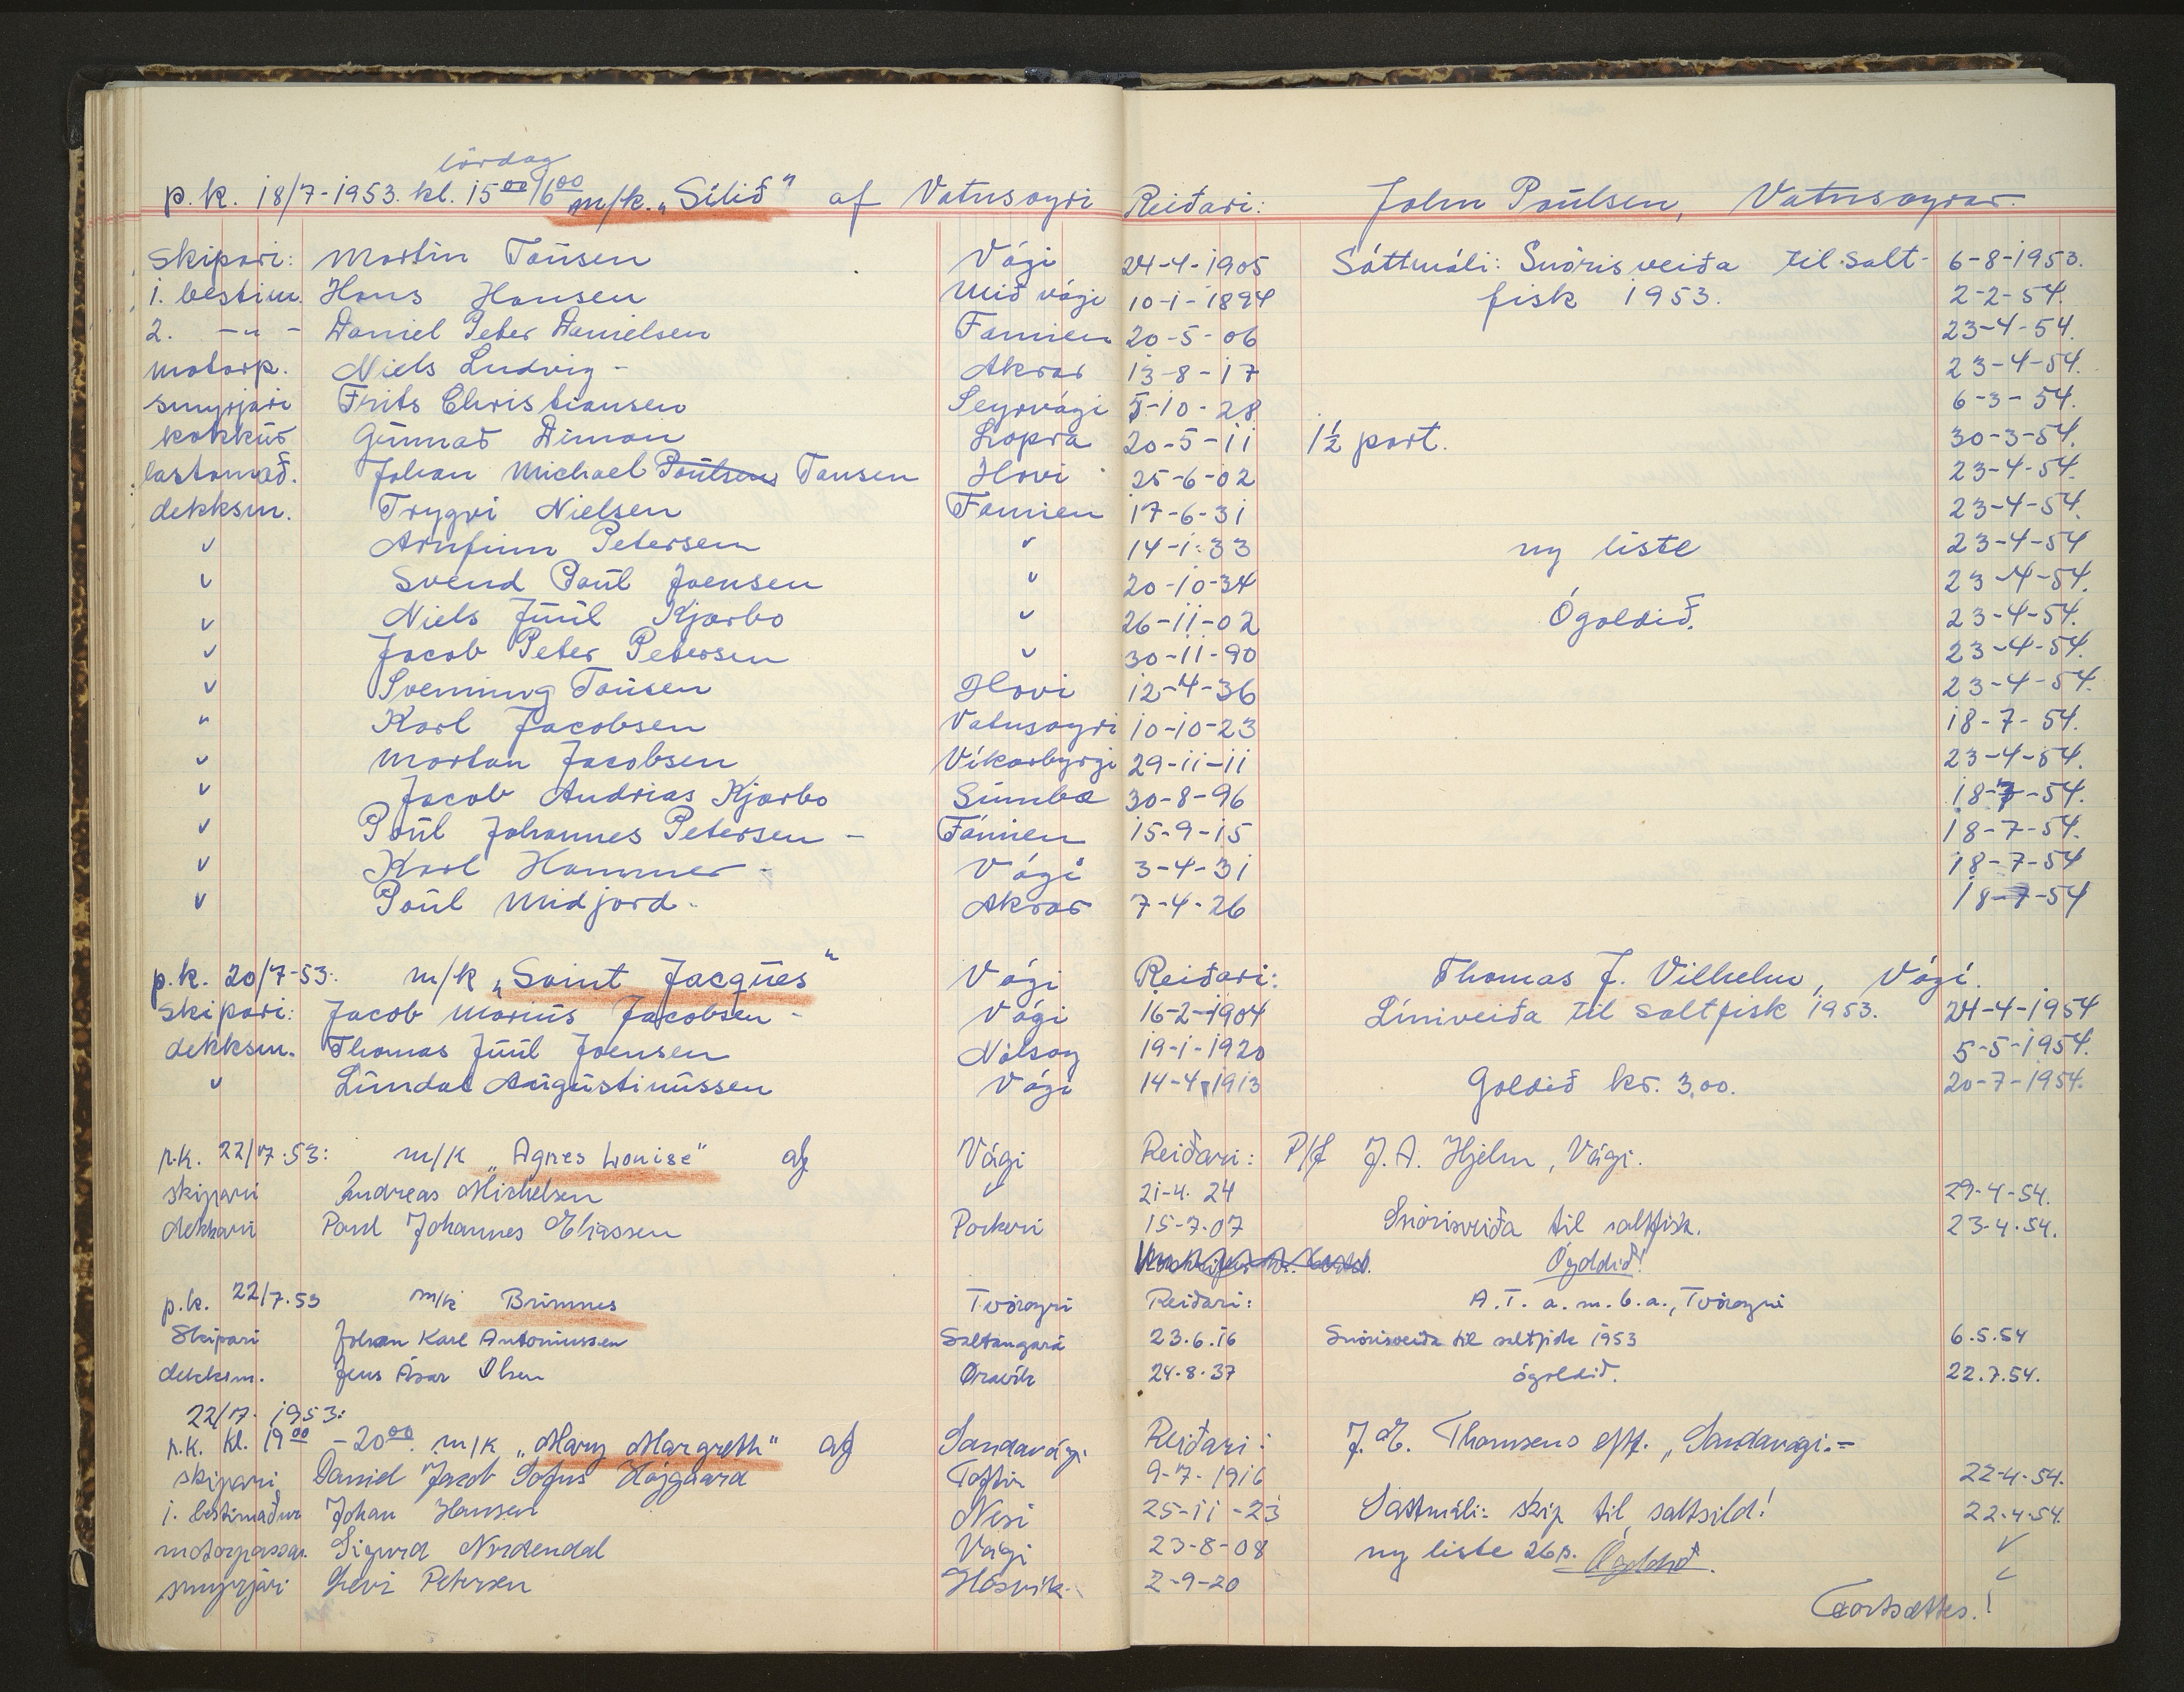 lördag
p.k. 18/7-1953. kl. 15 00/16 00 m/k. „Silið" af Vatnsoyri Reiðari: John Poulsen, Vatnsoyrar.
skipari: Martin Tausen Vági 24-4-1905 Sáttmáli: Snørisveiða til salt- 6-8-1953.
1. bestim. Hans Hansen Mið vági 10-1-1894 fisk 1953. 2-2-54.
2. -"- Daniel Peter Danielsen Famien 20-5-06 23-4-54.
motorp. Niels Ludvig - Akrar 13-8-17 23-4-54.
smyrjari Frits Christiansen Seyrvági 5-10-28 6-3-54.
kokkur Gunnar Dimon Lopra 20-5-11 1½ part. 30-3-54.
lastamað. Johan Michael Poulsen Tausen Hovi 25-6-02 23-4-54.
dekksm. Trygvi Nielsen Famien 17-6-31 23-4-54.
" Arnfinn Petersen " 14-1-33 ny liste 23-4-54
" Svend Paul Joensen " 20-10-34 23-4-54.
" Niels Juul Kjærbo " 26-11-02 Ógoldið. 23-4-54.
" Jacob Peter Petersen " 30-11-90 23-4-54.
" Svenning Tausen Hovi 12-4-36 23-4-54.
" Karl Jacobsen Vatnsoyri 10-10-23 18-7-54.
" Mortan Jacobsen Víkarbyrgi 29-11-11 23-4-54.
" Jacob Andrias Kjærbo Sumba 30-8-96 18-7-54.
" Poul Johannes Petersen - Fámien 15-9-15 18-7-54.
" Karl Hammer - Vági 3-4-31 18-7-54
" Poul Midjord - Akrar 7-4-26 18-7-54
p.k. 20/7-53: m/k „Saint Jacques" Vági Reiðari: Thomas J. Vilhelm, Vági.
skipari: Jacob Marius Jacobsen - Vági 16-2-1904 Líniveiða til saltfisk 1953. 24-4-1954
dekksm. Thomas Juul Joensen Nólsoy 19-1-1920 5-5-1954.
" Lundal Augustinussen Vági 14-4-1913 Goldið kr. 3,00. 20-7-1954.
p.k. 22/7-53: m/k „Agnes Louise" af Vági Reiðari: P/f J.A. Hjelm, Vági.
skipari Andreas Michelsen " 21-4. 24 29-4-54.
dekkari Poul Johannes Eliassen Porkeri 15-7-07 Snørisveiða til saltfisk. 23-4-54.
Ógoldið!
p.k. 22/7.53 m/k Brimnes Tvöroyri Reiðari: A.T. a.m.b.a., Tvöroyri
Skipari Johan Karl Antoniussen Saltangará 23.6.16 Snörisveiða til saltfisk 1953 6.5.54
dekksm. Jens Ásar Olsen Øravík 24.8.37 ógoldið. 22.7.54.
22/7. 1953:
p.k. kl. 19 00 - 20 00. m/k „Mary Margreth" af Sandavági. Reiðari: J.E. Thomsens eftf. „Sandavági.=
skipari Daniel Jacob Sofus Højgaard Toftir 9-7-1916 22-4-54.
1. bestimaður Johan Hansen Nesi 25-11-23 Sáttmáli: skip til saltsild! 22-4-54.
motorpassar. Sigurd Nordendal Vági 23-8-08 ny liste 26/8. Ógoldið. "
smyrjari Levi Petersen Hósvík. 2-9-20 "
Fortsættes.!